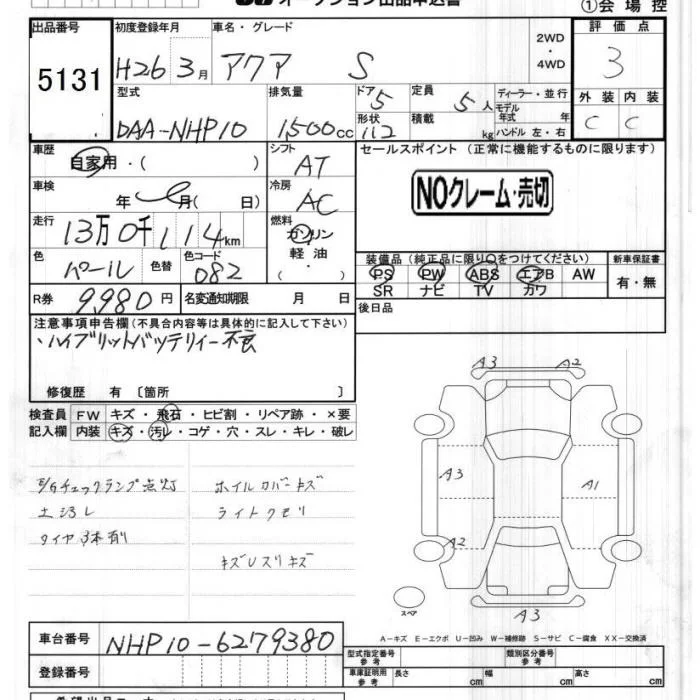 オークション出品申込書
①会場控
出品番号 初度登録年月 車名・グレード 評価点
5131 H26 3月 アクア S 2WD・4WD 3
型式 排気量 ドア 定員 ディーラー・並行 外装 内装
DAA-NHP10 1500cc 5 5人 モデル年式 年 C C
形状 積載 kg ハンドル 左・右
112
車歴 シフト セールスポイント (正常に機能するものに限ります)
自家用・( ) AT
車検 年 月( 日) 冷房 AC NOクレーム・売切
走行 13万0千114km 燃料 ガソリン
軽油・( )
色 パール 色替 色コード 082
装備品(純正品に限り○をつけてください) 新車保証書
PS PW ABS エアB AW 有・無
SR ナビ TV カワ
R券 9,980円 名変通知期限 月 日 後日品
注意事項申告欄(不具合内容等は具体的に記入して下さい)
・ハイブリットバッテリィー不良
修復歴 有〔箇所 〕
検査員 FW キズ・飛石・ヒビ割・リペア跡・×要
記入欄 内装 キズ・汚レ・コゲ・穴・スレ・キレ・破レ
A3 A2
A3 A1
A2
A3
スペア
E/Gチェックランプ点灯 ホイルカバーキズ
土シミレ ライトクモリ
タイヤ3本有リ
キズUスリキズ
A-キズ E-エクボ U-凹み W-補修跡 S-サビ C-腐食 XX-交換済
車台番号 NHP10-6279380
登録番号
型式指定番号 参考 類別区分番号 参考
車庫証明用 参考 長さ cm 幅 cm 高さ cm